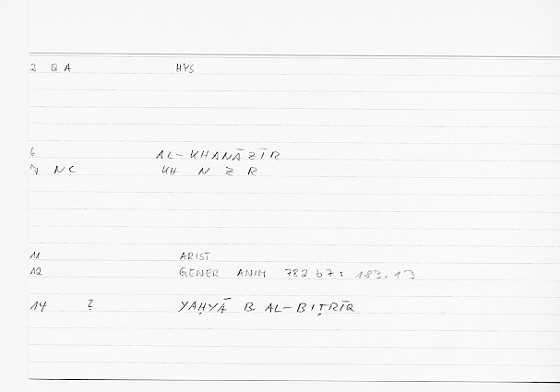 2 QA HYS
6 AL-KHANĀZĪR
7 NC KH N Z R
11 ARIST
12 GENER ANIM 782 b7: 183.13
14 ? YAḤYĀ B AL-BIṬRĪQ